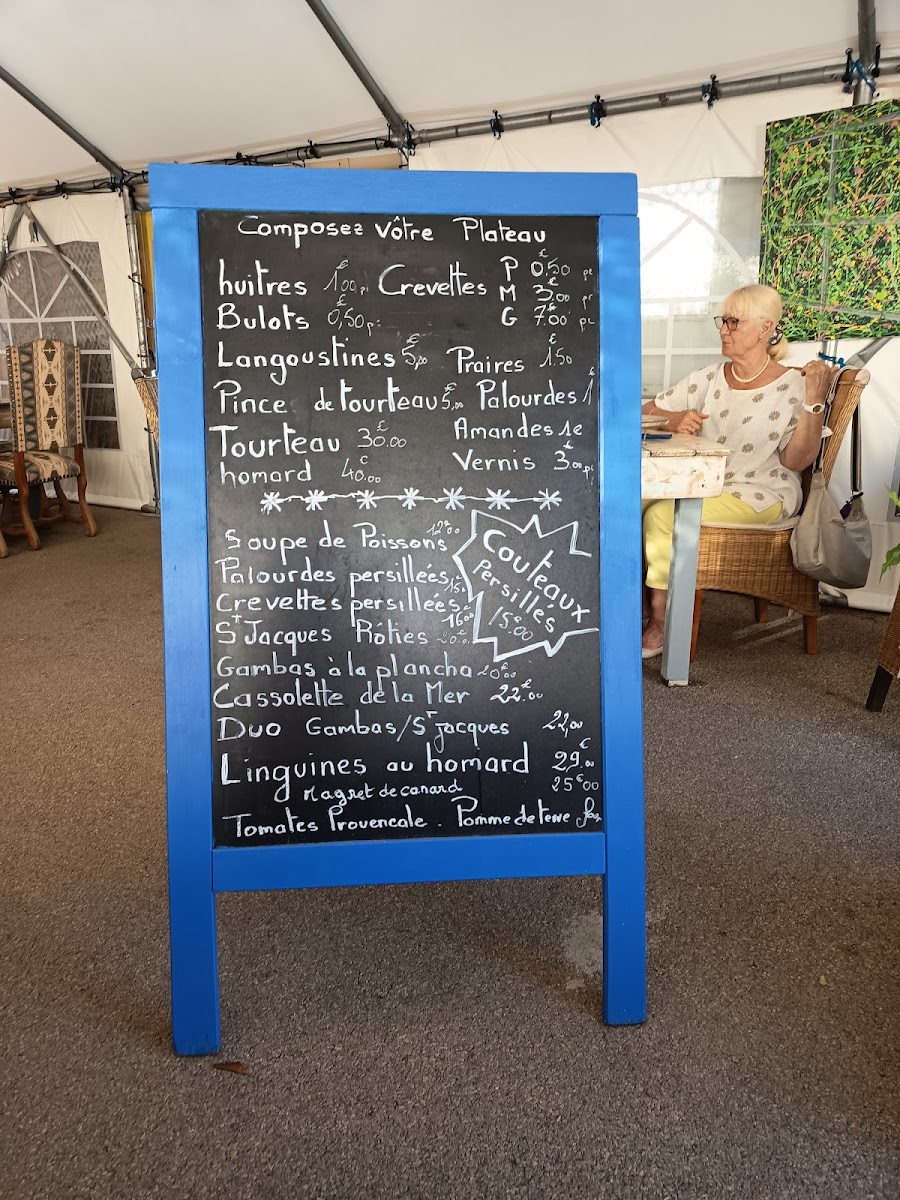 Composez Vôtre Plateau
huitres 1€00 pi
Crevettes P 0€50 pi
M 3€00 pi
G 7€00 pi
Bulots 0€,50 p:
Langoustines 5€,00
Praires 1€50
Pince de tourteau 5€,00
Palourdes 1€
Tourteau 30€.00
Amandes 1e
homard 40€.00
Vernis 3€.00 pi
Soupe de Poissons 12€00
Palourdes persillées 15
Crevettes persillées 16€00
Couteaux
Persillés
15€00
St Jacques Rôties 20
Gambas à la plancha 20€00
Cassolette de la Mer 22€.00
Duo Gambas/St jacques 22,00
Linguines au homard 29€.00
Magret de canard 25€00
Tomates Provencale . Pomme de terre